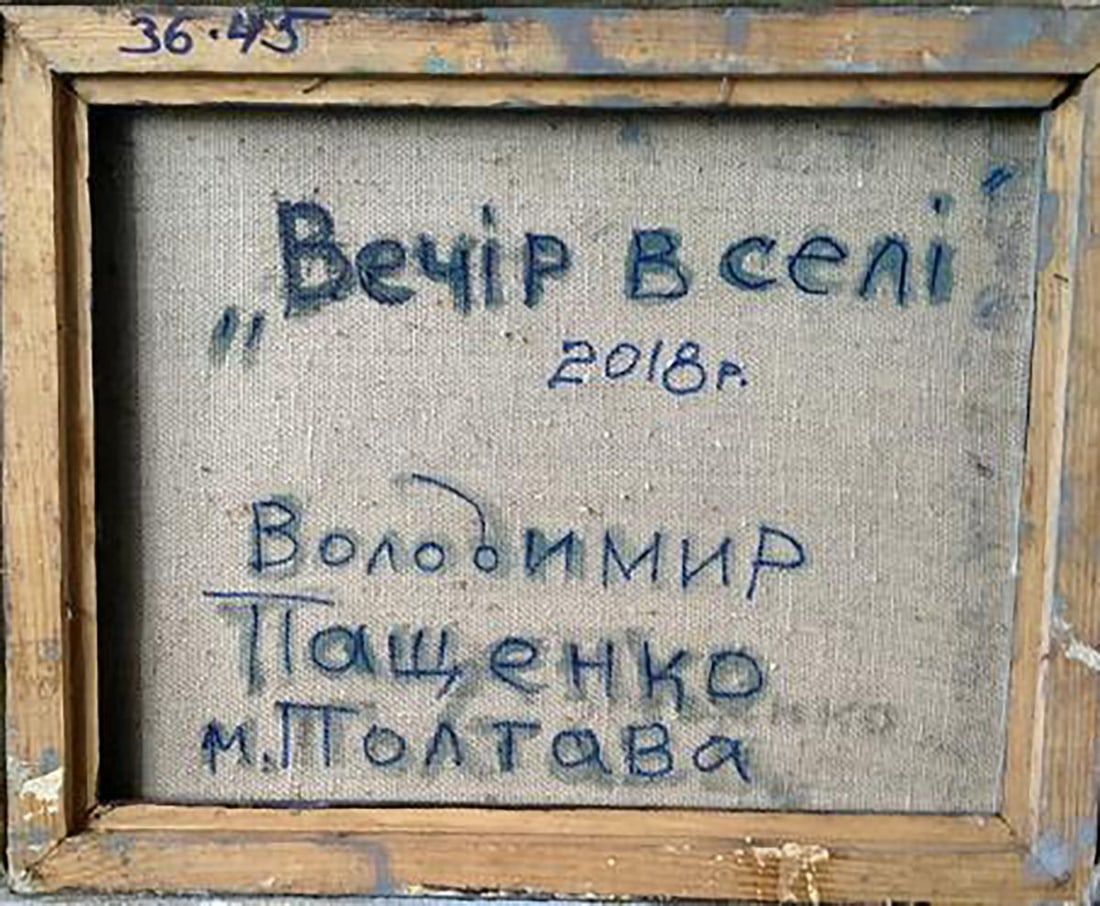 36·45
„Вечір в селі"
2018р.
Володимир
Пащенко
м.Полтава